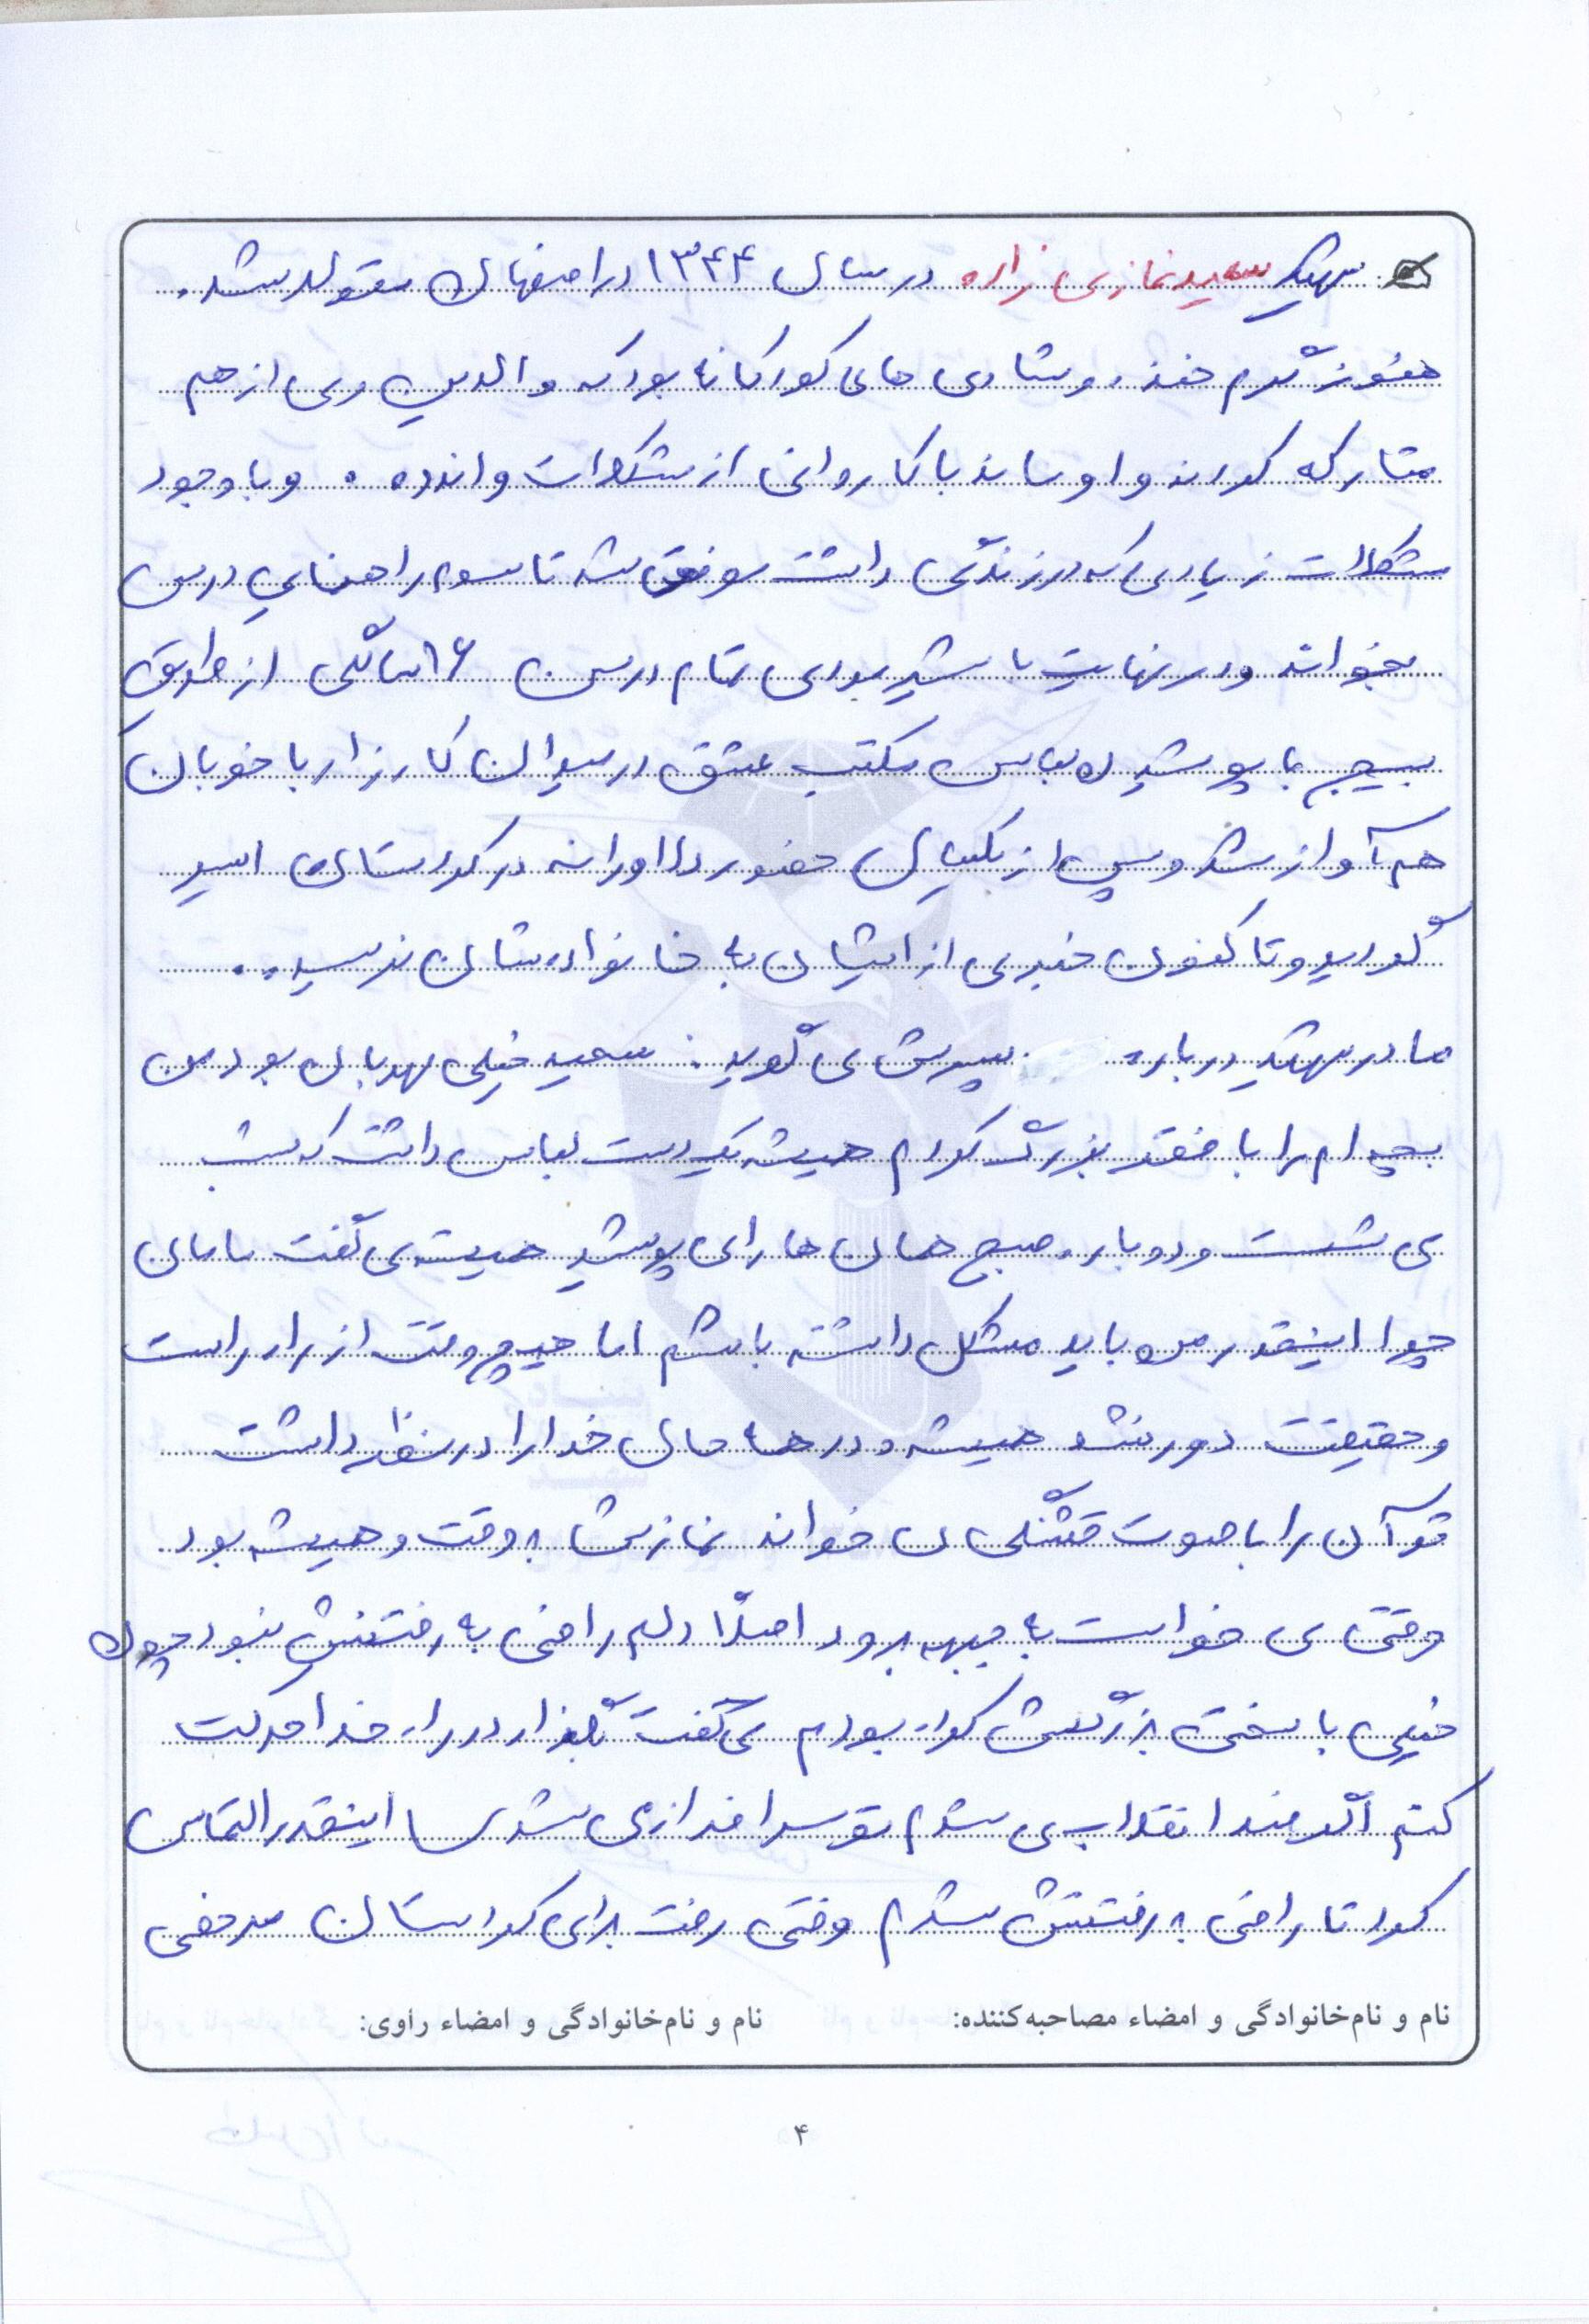 شهید سعید نمازی زاده در سال ۱۳۴۴ در اصفهان متولد شد.
هنوز گرم خنده و شادی های کودکانه بود که والدین وی از هم
متارکه کردند و او ماند با کاروانی از مشکلات و اندوه . و با وجود
مشکلات زیادی که در زندگی داشت موفق شد تا سوم راهنمایی درس
بخواند و در نهایت با شیرمردی تمام در سن ۱۶ سالگی از طریق
بسیج با پوشیدن لباس مکتب عشق در میدان کارزار با خوبان
هم آواز شد و پس از یکسال حضور دلاورانه در کردستان اسیر
گردید و تا کنون خبری از ایشان به خانواده شان نرسیده.
مادر شهید درباره پسرش می گوید: سعید خیلی مهربان بود من
بچه ام را با فقر بزرگ کردم همیشه یک دست لباس داشت که شب
می شست و دوباره صبح همان ها را می پوشید همیشه می گفت مامان
چرا اینقدر من باید مشکل داشته باشم اما هیچ وقت از راه راست
و حقیقت دور نشد همیشه و در همه حال خدا را در نظر داشت
قرآن را با صوت قشنگی می خواند نمازش به وقت و همیشه بود
وقتی می خواست به جبهه برود اصلاً دلم راضی به رفتنش نبود چون
خیلی با سختی بزرگش کرده بودم می گفت بگذار در راه خدا حرکت
کنم اگر ضد انقلاب می شدم تو سرافرازی شدی اینقدر التماس
کرد تا راضی به رفتنش شدم وقتی رفت برای کردستان مرخصی
نام و نام‌خانوادگی و امضاء مصاحبه‌کننده: نام و نام‌خانوادگی و امضاء راوی:
۴